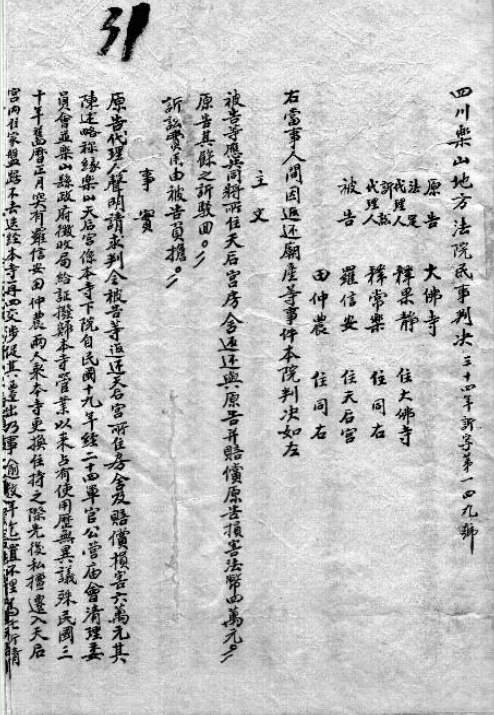 31
四川樂山地方法院民事判决 三十四年訴字第一四九號
原告 大佛寺
法定代理人 釋果靜 住大佛寺
訴訟代理人 釋常樂 住同右
被告 羅信安 住天后宮
田仲農 住同右
右當事人間因返还廟產等事件本院判决如左
主文
被告等應共同將所住天后宮房舍返还與原告并賠償原告損害法幣四萬元。
原告其餘之訴駁回。
訴訟費用由被告負擔。
事實
原告代理人聲明請求判令被告等返还天后宮所住房舍及賠償損害六萬元其
陳述略称緣樂山天后宮係本寺下院自民國十九年經二十四軍官公营庙會清理委
員會並樂山縣政府徵收局給証撥歸本寺管業以来占有使用歷無異議殊民國三
十年舊曆正月突有羅信安田仲農两人乘本寺更換住持之際先後私擅遷入天后
宮內住家盤踞不去迭經本寺再四交涉促其遷出